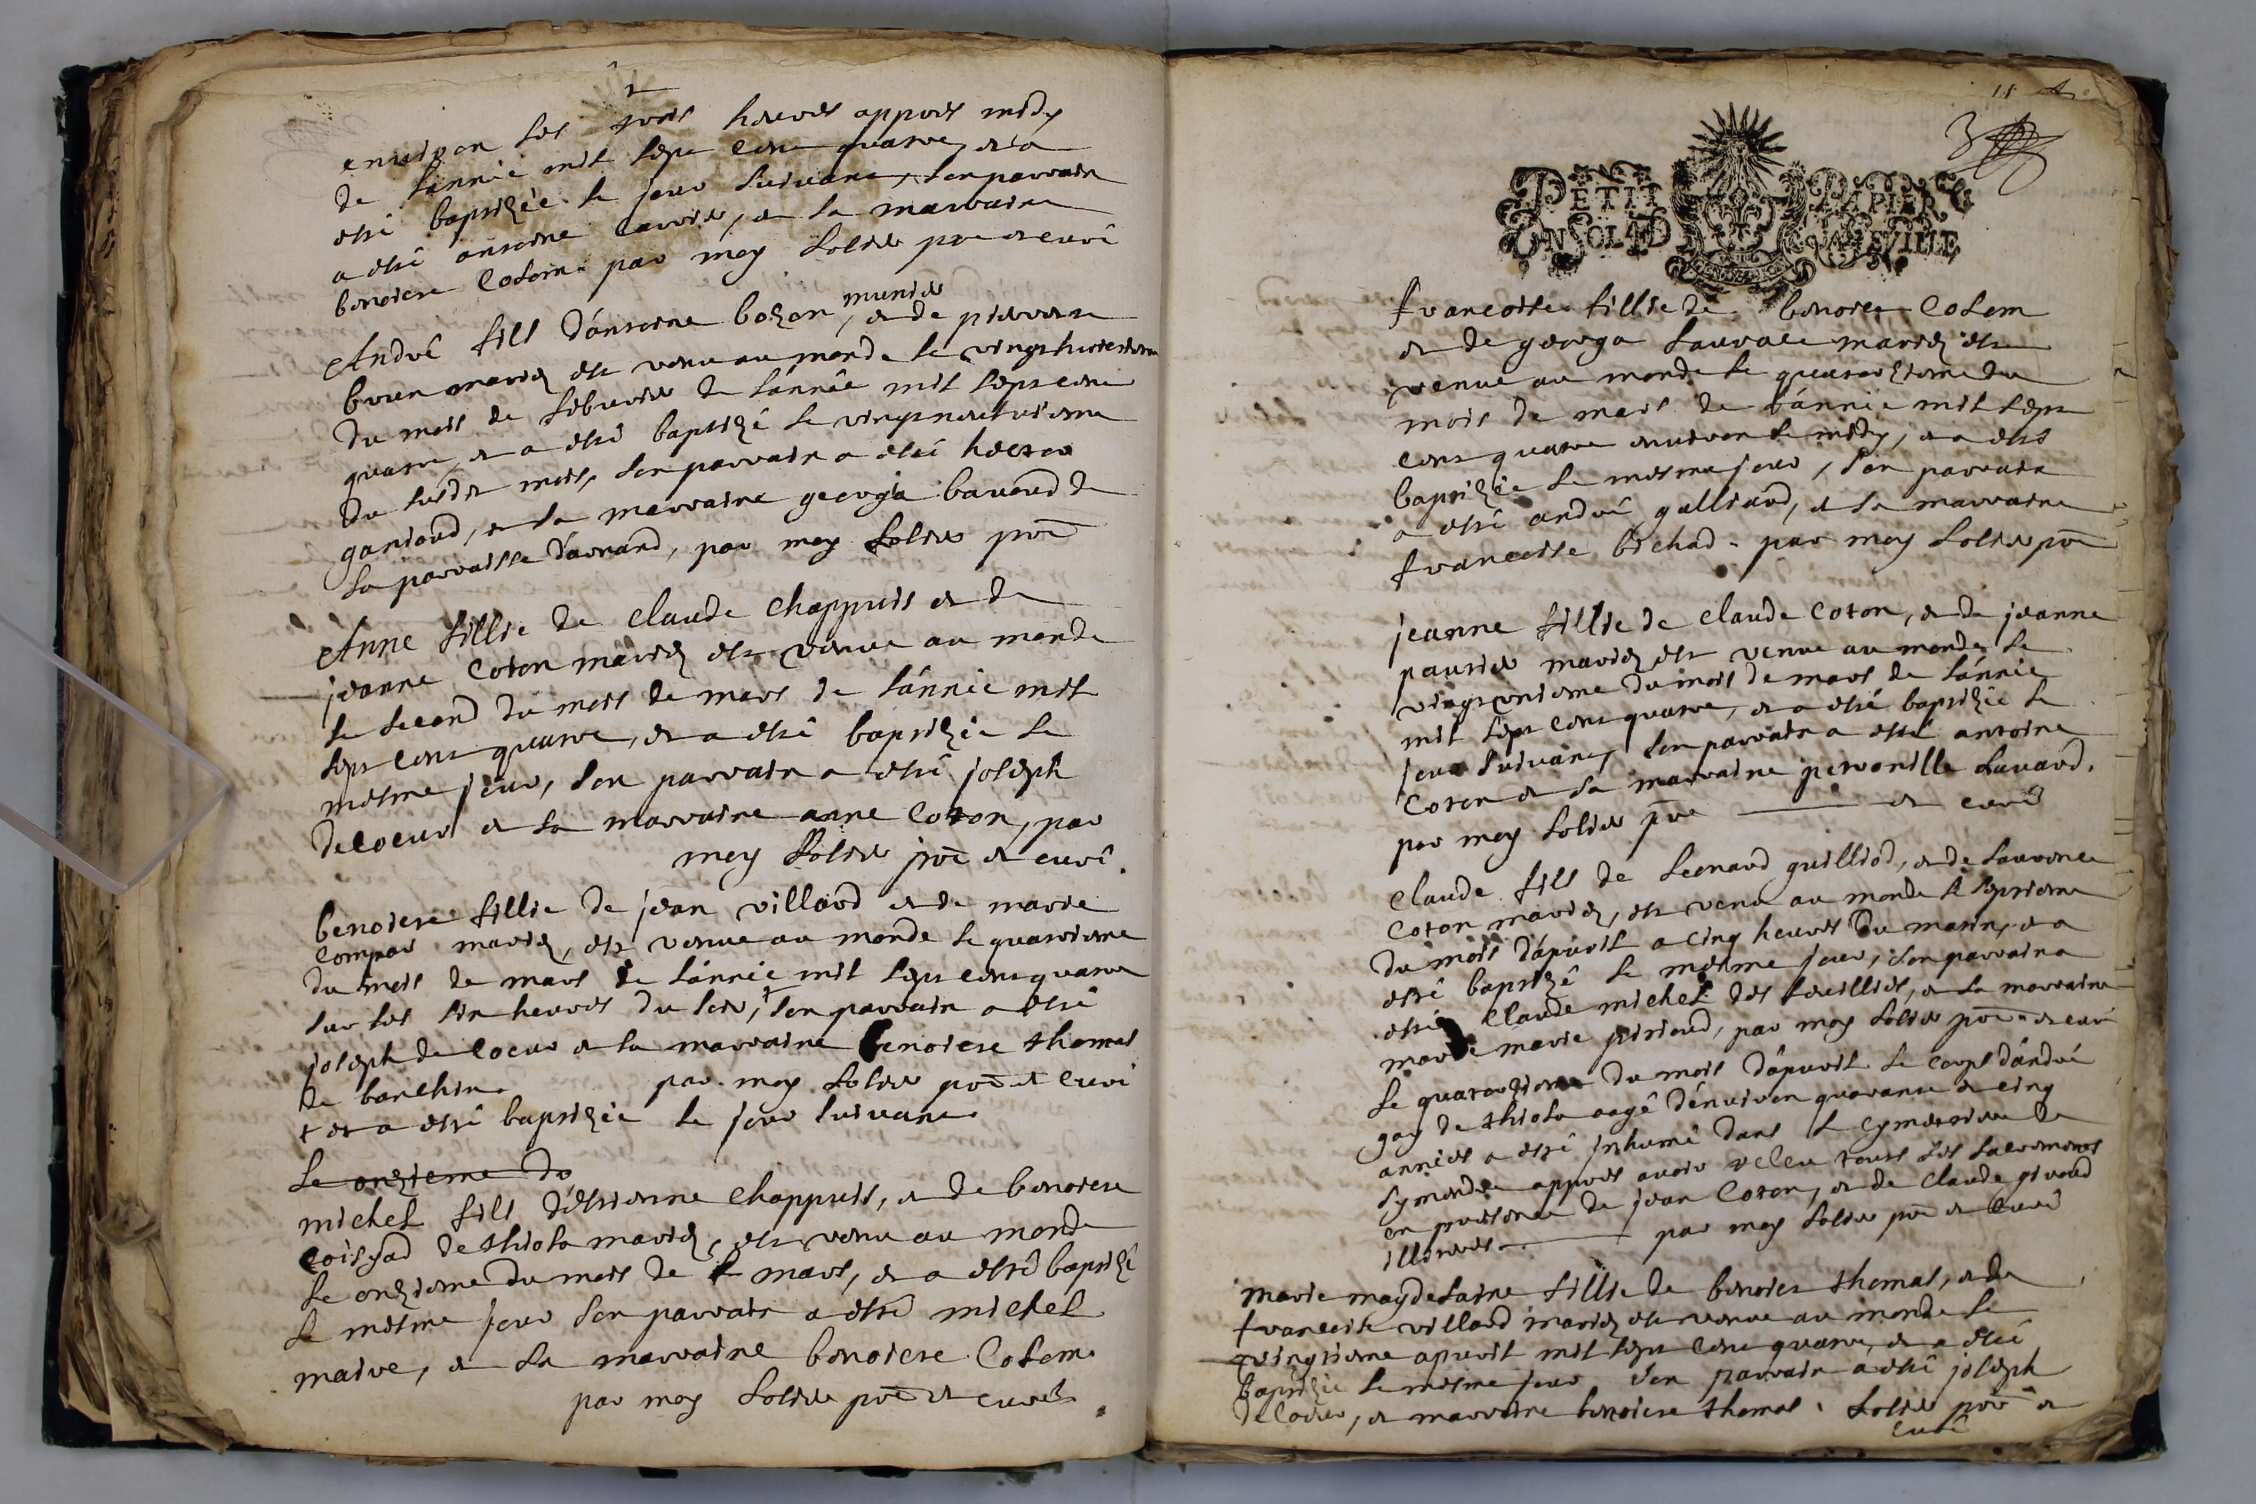 environ les trois heures appres midy
de lánnée mil sept cent quatre, et a
esté baptizée le jour suivant, son parrain
a esté antoine, et la marraine
benoiste Colom par moy Solier pre et curé
André fils dántoine bozon munier, et de pierrette
brun mariez est venu au monde le vingthuictiesme
du mois de febvrier de lánnée mil sept cent
quatre, et a esté baptizé le vingtneufviesme
du susdit mois, son parrain a esté hector
ganiard, et la marraine georgia bavoud de
la parroisse d'arnand, par moy Solier pre
Anne fillie de claude chappuis et de
jeanne Coton mariez est venue au monde
le second du mois de mars de lánnée mil
sept cent quatre, et a esté baptizée le
mesme jour, son parrain a esté joseph
decoeur et la marraine anne Coton, par
moy Solier pre et curé.
benoiste fillie de jean villard et de marie
compar mariez, est venue au monde le quatriesme
du mois de mars de lánnée mil sept cent quatre
sur les six heures du soir, + son parrain a esté
joseph de coeur et la marraine benoiste thomas
de banchin par moy Solier pre et curé
+ et a esté baptizée le jour suivant
Le onzieme du
michel fils déstienne chappuis, et de benoiste
de thiola mariez, est venu au monde
le onziesme du mois de mars, et a esté baptizé
le mesme jour son parrain a esté michel
maire, et la marraine benoiste Colom
par moy Solier pre et curé
11
3
PETIT PAPIER
EN SOL 4D LA FEVILLE
francoise fillie de benoist Colom
et de georga Lauvare mariez est
venue au monde le quatorziesme du
mois de mars de lánnée mil sept
cent quatre environ le midy, et a esté
baptizée le mesme jour, son parrain
a esté andré galliard, et la marraine
francoise bichad par moy Solier pre
jeanne fillie de claude Coton, et de jeanne
paurier mariez est venue au monde le
vingtuniesme du mois de mars de lánnée
mil sept cent quatre, et a esté baptizée le
jour suivant, son parrain a esté antoine
Coton et la marraine peronille Savard.
par moy Solier pre et curé
claude fils de Leonard guilliod, et de Laurence
Coton mariez, est venu au monde le septiesme
du mois dápvril a cinq heures du matin, et a
esté baptizé le mesme jour, son parrain a
esté Claude michel des fouillies, et la marraine
marie marie piriaud, par moy Solier pre et curé
Le quatorziesme du mois dápvril le corps dándré
gay de thiola aagé dénviron quarante et cinq
années a esté inhumé dans le cymetiere de
Symandre appres avoir receu tous les sacrements
en presence de jean Coton, et de claude giraud
illiteres par moy Solier pre et curé
marie magdelaine fillie de benoist thomas, et de
francoise villard mariez est venue au monde le
vingtiesme apvril mil sept cent quatre, et a esté
baptizée le mesme jour son parrain a esté joseph
de Coeur, et marraine benoiste thomas. Solier pre et
curé